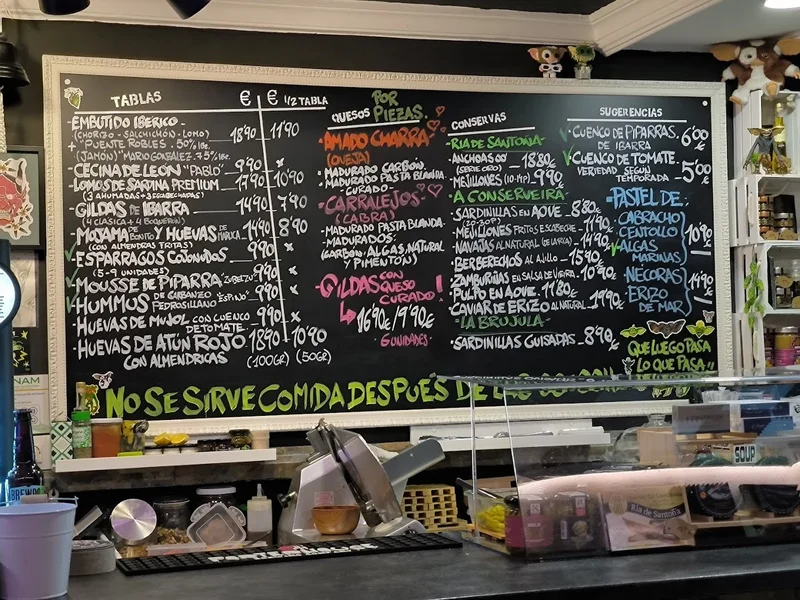 TABLAS € € 1/2 TABLA
EMBUTIDO IBERICO
(CHORIZO - SALCHICHÓN - LOMO) 18'90 11'90
+ "PUENTE ROBLES". 50% Ibe.
(JAMÓN) "MARIO GONZALEZ". 75% Ibe.
CECINA DE LEÓN "PABLO" 9'90 x
LOMOS DE SARDINA PREMIUM 17'90 10'90
(3 AHUMADAS + 3 ESCABECHADAS)
GILDAS DE IBARRA 14'90 8'90
(4 CLÁSICA - 4 BOQUERÓN)
MOJAMA DE BONITO Y HUEVAS DE MARUCA 14'90 7'90
(CON ALMENDRAS FRITAS)
ESPARRAGOS COJONUDOS 9'90 x
(5-9 UNIDADES)
MOUSSE DE PIPARRA "ZUBELZU" 9'90 x
HUMMUS DE GARBANZO PEDROSILLANO "ESPINO" 9'90 x
HUEVAS DE MUJOL CON CUENCO DE TOMATE 9'90 x
HUEVAS DE ATÚN ROJO 18'90 10'90
CON ALMENDRICAS (100GR) (50GR)
QUESOS POR PIEZAS
AMADO CHARRA
(OVEJA)
MADURADO CARBÓN.
MADURADO PASTA BLANDA.
CURADO.
CARRALEJOS.
(CABRA)
MADURADO PASTA BLANDA.
MADURADOS.
(CARBÓN - ALGAS, NATURAL
Y PIMENTÓN)
GILDAS CON QUESO CURADO!
16'90/9'90€
6 UNIDADES
CONSERVAS
RIA DE SANTOÑA
ANCHOAS 00 18'80€
(SERIE ORO)
MEJILLONES (10-14P) 9'90€
A CONSERVEIRA
SARDINILLAS EN AOVE 8'80€
(20-30P)
MEJILLONES FRITOS ESCABECHE
NAVAJAS AL NATURAL 14'90€
BERBERECHOS AL AJILLO 15'90
ZAMBURIÑAS EN SALSA DE VIEIRA 10'90€
PULPO EN AOVE 11'80€
CAVIAR DE ERIZO AL NATURAL 19'90€
LA BRUJULA
SARDINILLAS GUISADAS 8'90€
SUGERENCIAS
CUENCO DE PIPARRAS DE IBARRA 6'00€
CUENCO DE TOMATE 5'00€
VARIEDAD SEGÚN TEMPORADA
PASTEL DE:
CABRACHO
CENTOLLO 10'90€
ALGAS MARINAS
NÉCORAS 14'90€
ERIZO DE MAR
QUE LUEGO PASA
LO QUE PASA..
NO SE SIRVE COMIDA DESPUÉS DE LAS
SOUP
Ría de Santoña